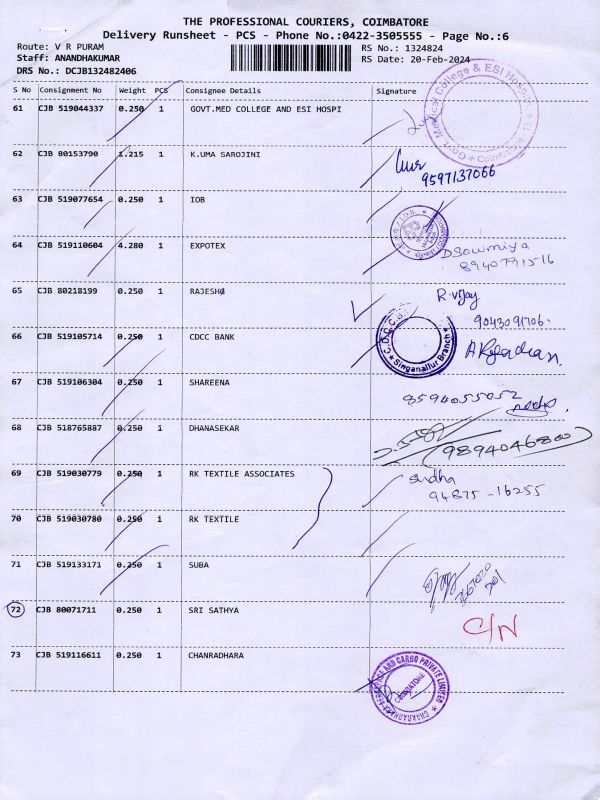 THE PROFESSIONAL COURIERS, COIMBATORE
Delivery Runsheet - PCS - Phone No.:0422-3505555 - Page No.:6
Route: V R PURAM
RS No.: 1324824
Staff: ANANDHAKUMAR
RS Date: 20-Feb-2024
DRS No.: DCJB132482406
S No Consignment No Weight PCS Consignee Details Signature
61 CJB 519044337 0.250 1 GOVT.MED COLLEGE AND ESI HOSPI
Govt. Medical College & ESI Hospital
62 CJB 80153790 1.215 1 K.UMA SAROJINI
9597137066
63 CJB 519077654 0.250 1 IOB
64 CJB 519110604 4.280 1 EXPOTEX
D Sowmiya
8940791516
65 CJB 80218199 0.250 1 RAJESH@
R. Vijay
9043091706.
66 CJB 519105714 0.250 1 CDCC BANK
C.D.C.C.B
Singanallur Branch
67 CJB 519106304 0.250 1 SHAREENA
8594055052
68 CJB 518765887 0.250 1 DHANASEKAR
(9894046800)
69 CJB 519030779 0.250 1 RK TEXTILE ASSOCIATES
Sudha
94875 - 16255
70 CJB 519030780 0.250 1 RK TEXTILE
71 CJB 519133171 0.250 1 SUBA
72 CJB 80071711 0.250 1 SRI SATHYA
C/N
73 CJB 519116611 0.250 1 CHANRADHARA
AND CARGO PRIVATE LIMITED
COIMBATORE